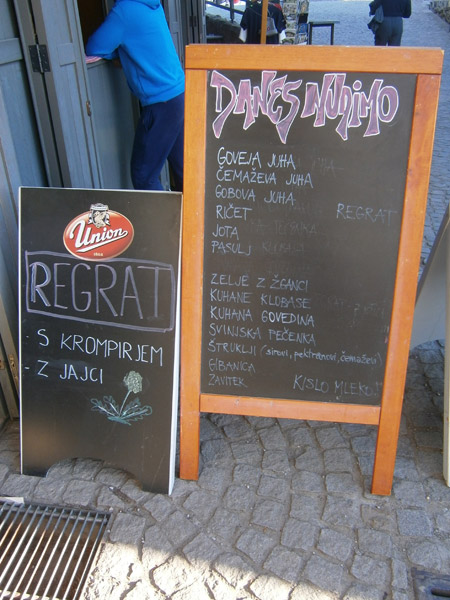 Union
REGRAT
- S KROMPIRJEM
- Z JAJCI
DANES NUDIMO
GOVEJA JUHA
ČEMAŽEVA JUHA
GOBOVA JUHA
RIČET REGRAT
JOTA
PASULJ
ZELJE Z ŽGANCI
KUHANE KLOBASE
KUHANA GOVEDINA
SVINJSKA PEČENKA
ŠTRUKLJI (sirovi, pehtranovi, čemaževi)
GIBANICA
ZAVITEK KISLO MLEKO